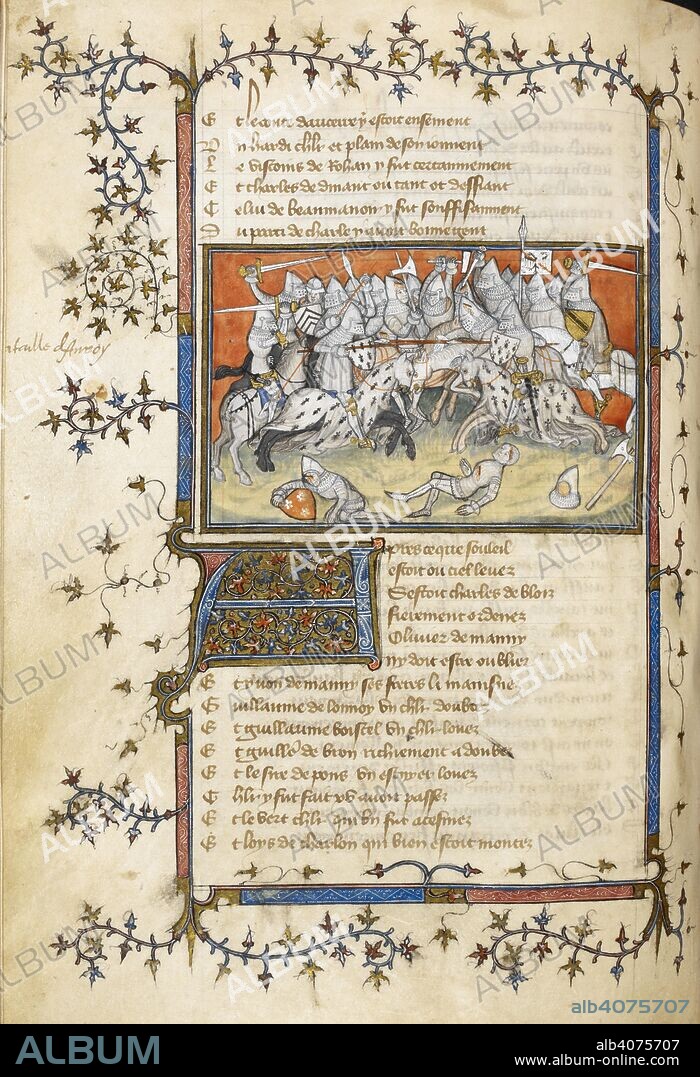 Et le conte daucerre y estoit ensement
Vn hardi chlr et plain de son iouuent
Le viscoms de Rohan y fut certainnement
Et charles de dinant ou tant ot deffiant
Celui de beaumanoir y fut souffisaument
Du parti de charle y auoit
bataille d'Auroy
Apres ce que souleil
estoit ou ciel leuez
Sestoit charles de blois
fierement ordenez
Oliuier de manny
ny doit estre oubliez
Et yuon de manny ses freres li mainsne
Guillaume de lonnoy vn chlr doubtez
Et guillaume boistel vn chlr louez
Et guille de bron richement adoubez
Et le sire de pons vn escuier louez
Chlr y fut fait xv auoit passez
Et le vert chlr qui vn fut acesmez
Et loys de chaalon qui bien estoit montez
ALBUM
alb4075707
ALBUM
alb4075707
www.album-online.com